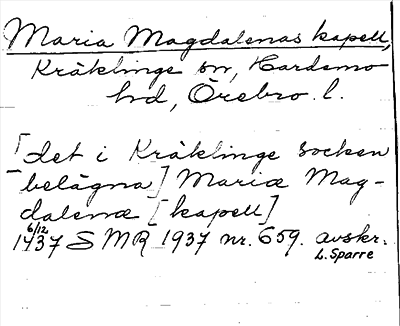 Maria Magdalenas kapell,
Kräklinge sn, Hardemo
hd, Örebro l.
[det i Kräklinge socken
belägna] Mariæ Mag-
dalenæ [kapell]
6/12
1437 SMR 1937 nr. 659. avskr.
L. Sparre